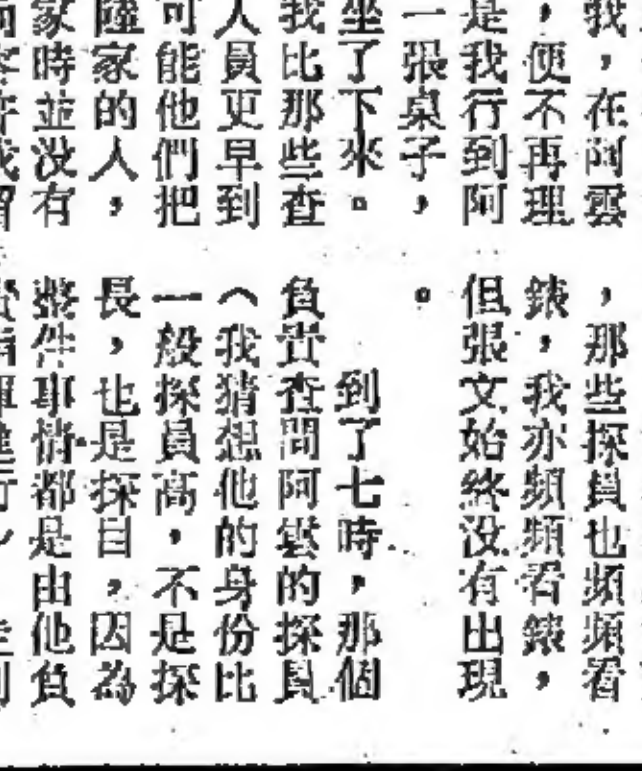 我，在阿雲
，便不再理
是我行到阿
一張桌子，
坐了下來。
我比那些查
人員更早到
可能他們把
家的人，
家時並没有
，那些探員也頻頻看
錶，我亦頻頻看錶，
但張文始終没有出現
。
到了七時，那個
負責查問阿雲的探員
（我猜想他的身份比
一般探員高，不是探
長，也是探目，因為
整件事情都是由他負